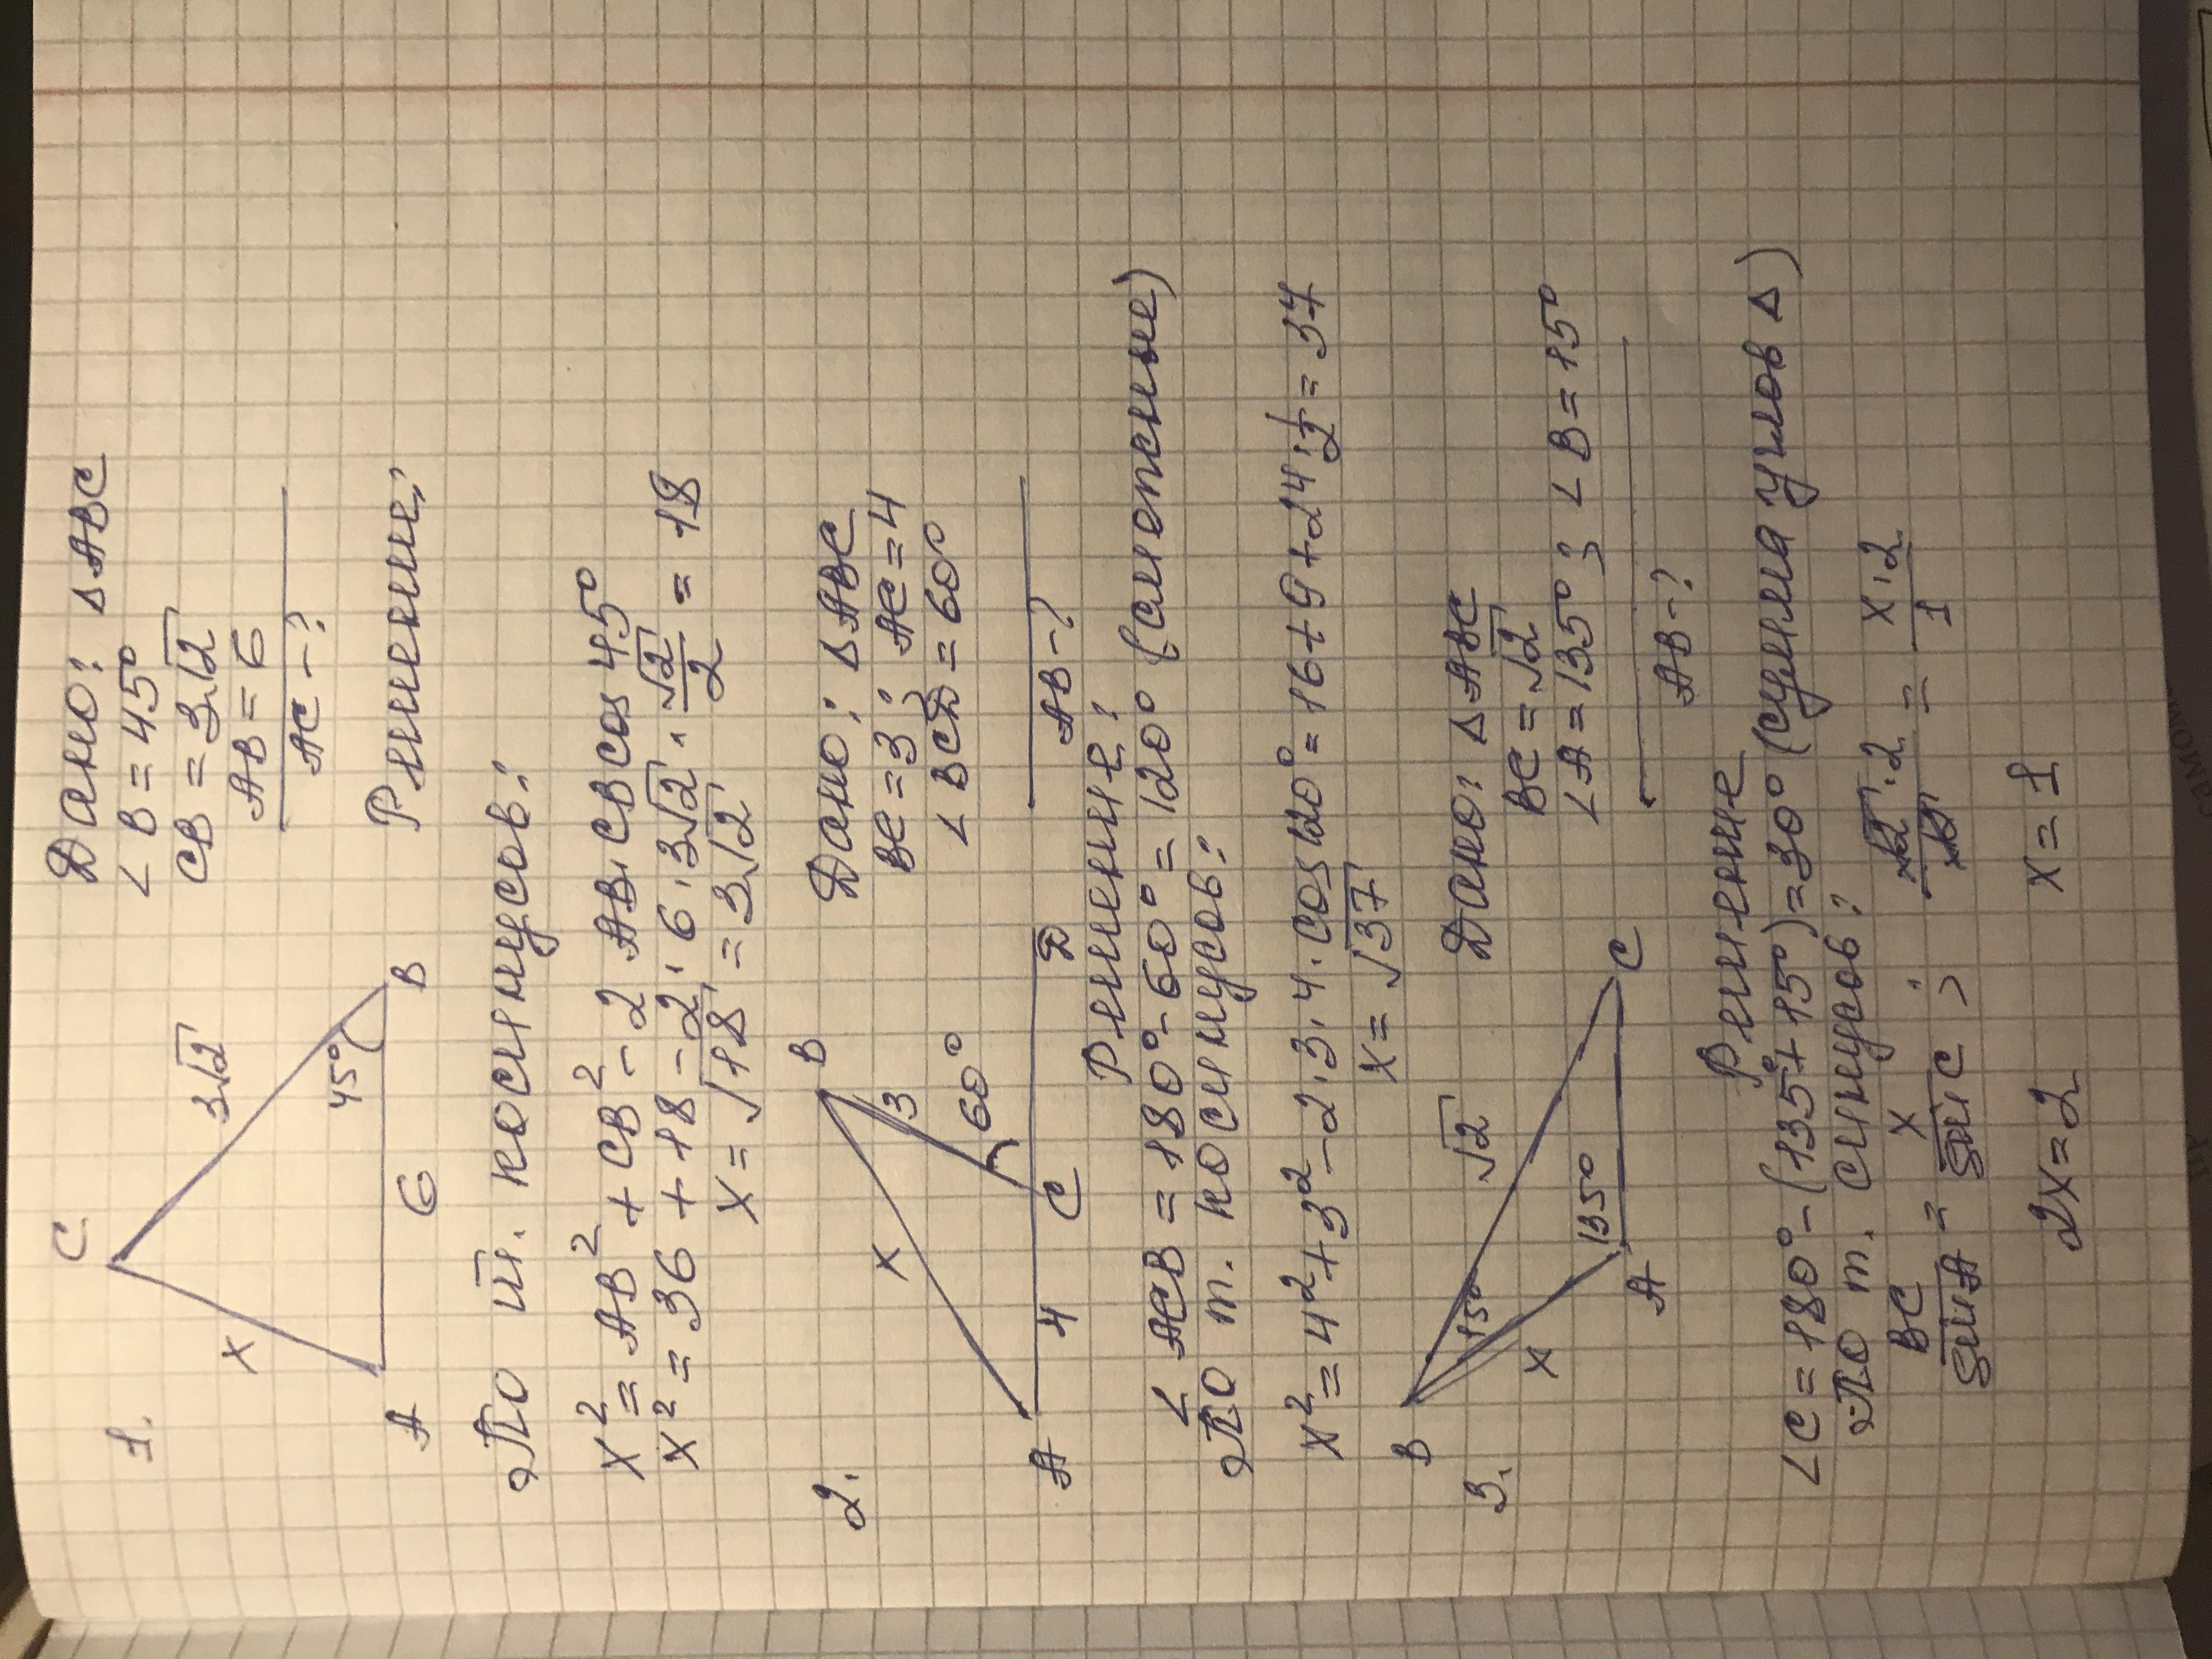 1.
C
3√2
x
45°
A
6
B
Дано: Δ ABC
∠ B = 45°
CB = 3√2
AB = 6
AC - ?
Решение:
По т. косинусов:
x² = AB² + CB² - 2 AB·CB cos 45°
x² = 36 + 18 - 2·6·3√2·√2/2 = 18
x = √18 = 3√2
2.
B
x
3
60°
A
4
C
D
Дано: Δ ABC
BC = 3; AC = 4
∠ BCD = 60°
AB - ?
Решение:
∠ ACB = 180° - 60° = 120° (смежные)
По т. косинусов:
x² = 4² + 3² - 2·3·4·cos 120° = 16 + 9 + 24·1/2 = 37
x = √37
3.
B
15°
√2
x
135°
A
C
Дано: Δ ABC
BC = √2
∠A = 135°; ∠ B = 15°
AB - ?
Решение
∠C = 180° - (135° + 15°) = 30° (сумма углов Δ)
По т. синусов:
BC/sin A = x/sin C; √2·2/√2 = x·2/1
2x = 2
x = 1